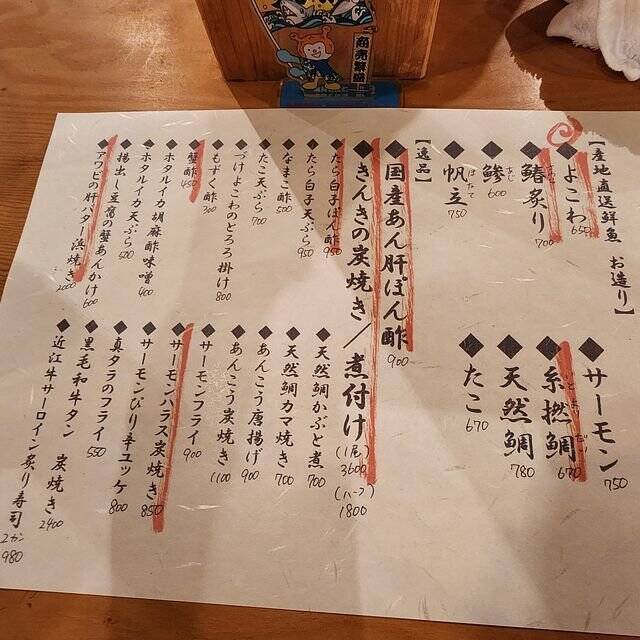 商売繁盛
【産地直送鮮魚 お造り】
◆よこわ 650
◆鰆炙り 700
◆鯵 600
◆帆立 750
ほたて
◆サーモン 750
◆糸撚鯛 670
◆天然鯛 780
◆たこ 670
【逸品】
◆国産あん肝ぽん酢 900
◆きんきの炭焼き/煮付け (1尾) 3600 (ハーフ) 1800
◆たら白子ぽん酢 950
◆たら白子天ぷら 950
◆なまこ酢 500
◆たこ天ぷら 700
◆づけよこわのとろろ掛け 800
◆もずく酢 300
◆蟹酢 450
◆ホタルイカ胡麻酢味噌 400
◆ホタルイカ天ぷら 500
◆揚出し豆腐の蟹あんかけ 600
◆アワビの肝バター浜焼き 2000
◆天然鯛かぶと煮 700
◆天然鯛カマ焼き 700
◆あんこう唐揚げ 900
◆あんこう炭焼き 1100
◆サーモンフライ 900
◆サーモンハラス炭焼き 850
◆サーモンぴり辛ユッケ 800
◆真タラのフライ 550
◆黒毛和牛タン 炭焼き 2400
◆近江牛サーロイン炙り寿司 2カン 980